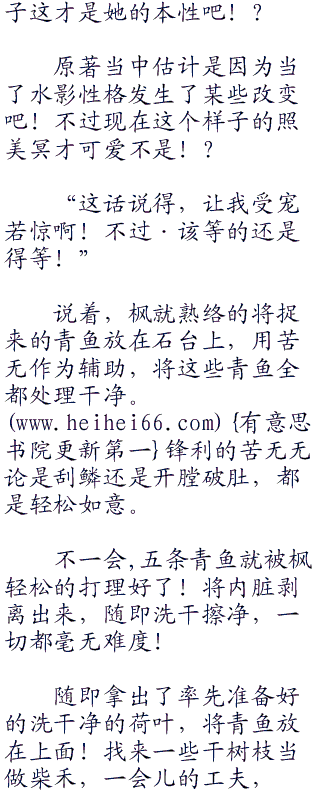 子这才是她的本性吧！？
原著当中估计是因为当
了水影性格发生了某些改变
吧！不过现在这个样子的照
美冥才可爱不是！？
“这话说得，让我受宠
若惊啊！不过·该等的还是
得等！”
说着，枫就熟络的将捉
来的青鱼放在石台上，用苦
无作为辅助，将这些青鱼全
都处理干净。
(www.heihei66.com){有意思
书院更新第一}锋利的苦无无
论是刮鳞还是开膛破肚，都
是轻松如意。
不一会,五条青鱼就被枫
轻松的打理好了！将内脏剥
离出来，随即洗干擦净，一
切都毫无难度！
随即拿出了率先准备好
的洗干净的荷叶，将青鱼放
在上面！找来一些干树枝当
做柴禾，一会儿的工夫，